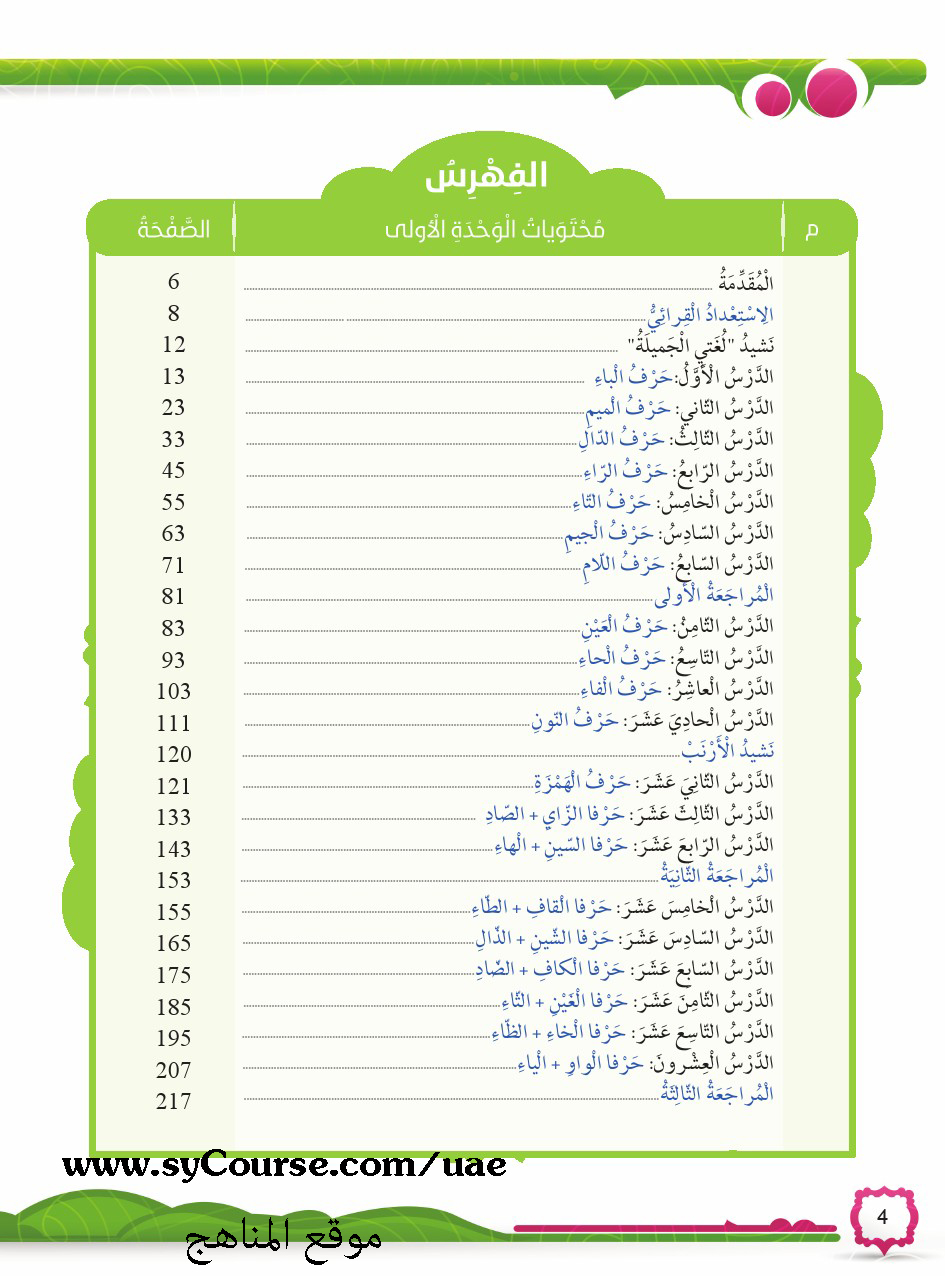 الفِهْرِسُ
م مُحْتَوَياتُ الْوَحْدَةِ الْأولى الصَّفْحَةُ
الْمُقَدِّمَةُ 6
الِاسْتِعْدادُ الْقِرائِيُّ 8
نَشيدُ "لُغَتي الْجَميلَةُ" 12
الدَّرْسُ الْأَوَّلُ:حَرْفُ الْباءِ 13
الدَّرْسُ الثّاني: حَرْفُ الْميمِ 23
الدَّرْسُ الثّالِثُ: حَرْفُ الدّالِ 33
الدَّرْسُ الرّابِعُ: حَرْفُ الرّاءِ 45
الدَّرْسُ الْخامِسُ: حَرْفُ التّاءِ 55
الدَّرْسُ السّادِسُ: حَرْفُ الْجيمِ 63
الدَّرْسُ السّابِعُ: حَرْفُ اللّامِ 71
الْمُراجَعَةُ الْأولى 81
الدَّرْسُ الثّامِنُ: حَرْفُ الْعَيْنِ 83
الدَّرْسُ التّاسِعُ: حَرْفُ الْحاءِ 93
الدَّرْسُ الْعاشِرُ: حَرْفُ الْفاءِ 103
الدَّرْسُ الْحادِيَ عَشَرَ: حَرْفُ النّونِ 111
نَشيدُ الْأَرْنَبْ 120
الدَّرْسُ الثّانِيَ عَشَرَ: حَرْفُ الْهَمْزَةِ 121
الدَّرْسُ الثّالِثَ عَشَرَ: حَرْفا الزّايِ + الصّادِ 133
الدَّرْسُ الرّابِعَ عَشَرَ: حَرْفا السّينِ + الْهاءِ 143
الْمُراجَعَةُ الثّانِيَةُ 153
الدَّرْسُ الْخامِسَ عَشَرَ: حَرْفا الْقافِ + الطّاءِ 155
الدَّرْسُ السّادِسَ عَشَرَ: حَرْفا الشّينِ + الذّالِ 165
الدَّرْسُ السّابِعَ عَشَرَ: حَرْفا الْكافِ + الضّادِ 175
الدَّرْسُ الثّامِنَ عَشَرَ: حَرْفا الْغَيْنِ + الثّاءِ 185
الدَّرْسُ التّاسِعَ عَشَرَ: حَرْفا الْخاءِ + الظّاءِ 195
الدَّرْسُ الْعِشْرونَ: حَرْفا الْواوِ + الْياءِ 207
الْمُراجَعَةُ الثّالِثَةُ 217
www.syCourse.com/uae
موقع المناهج
4